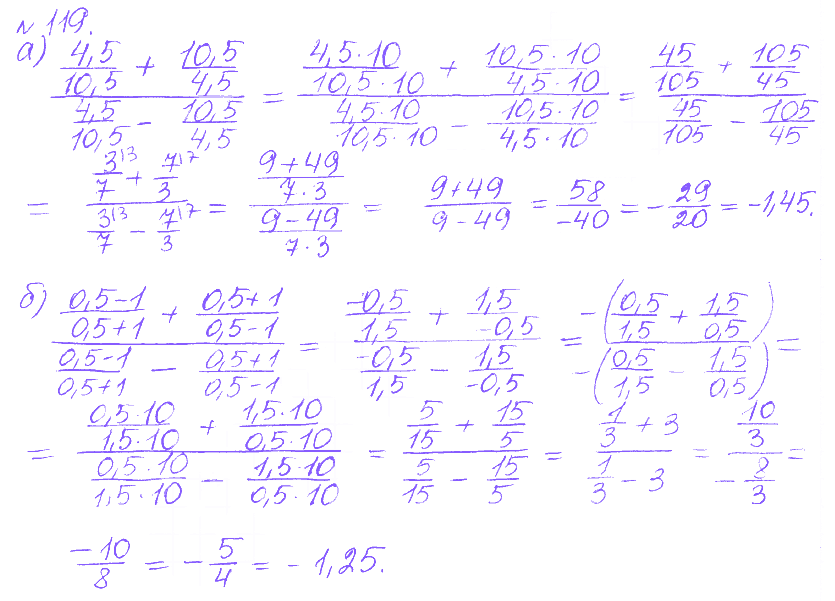 № 119.
а) (4,5/10,5 + 10,5/4,5)/(4,5/10,5 − 10,5/4,5) = (4,5·10/10,5·10 + 10,5·10/4,5·10)/(4,5·10/10,5·10 − 10,5·10/4,5·10) = (45/105 + 105/45)/(45/105 − 105/45)
= (3|3/7 + 7|7/3)/(3|3/7 − 7|7/3) = ((9+49)/(7·3))/((9−49)/(7·3)) = (9+49)/(9−49) = 58/−40 = −29/20 = −1,45.
б) ((0,5−1)/(0,5+1) + (0,5+1)/(0,5−1))/((0,5−1)/(0,5+1) − (0,5+1)/(0,5−1)) = (−0,5/1,5 + 1,5/−0,5)/(−0,5/1,5 − 1,5/−0,5) = −(0,5/1,5 + 1,5/0,5)/−(0,5/1,5 − 1,5/0,5) =
= (0,5·10/1,5·10 + 1,5·10/0,5·10)/(0,5·10/1,5·10 − 1,5·10/0,5·10) = (5/15 + 15/5)/(5/15 − 15/5) = (1/3 + 3)/(1/3 − 3) = (10/3)/(−8/3) =
−10/8 = −5/4 = −1,25.